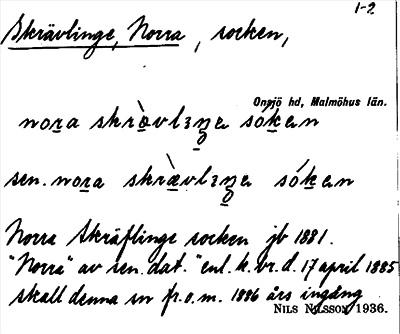 1-2
Skrävlinge, Norra, socken,
Onsjö hd, Malmöhus län.
nora skràvlɜŋe sóken
sen. nora skræ̀vlɜŋe sóken
Norra Skräflinge socken jb 1881.
"Norra" av sen. dat. "enl. k. br. d. 17 april 1885
skall denna sn fr. o. m. 1886 års ingång
NILS NILSSON 1936.